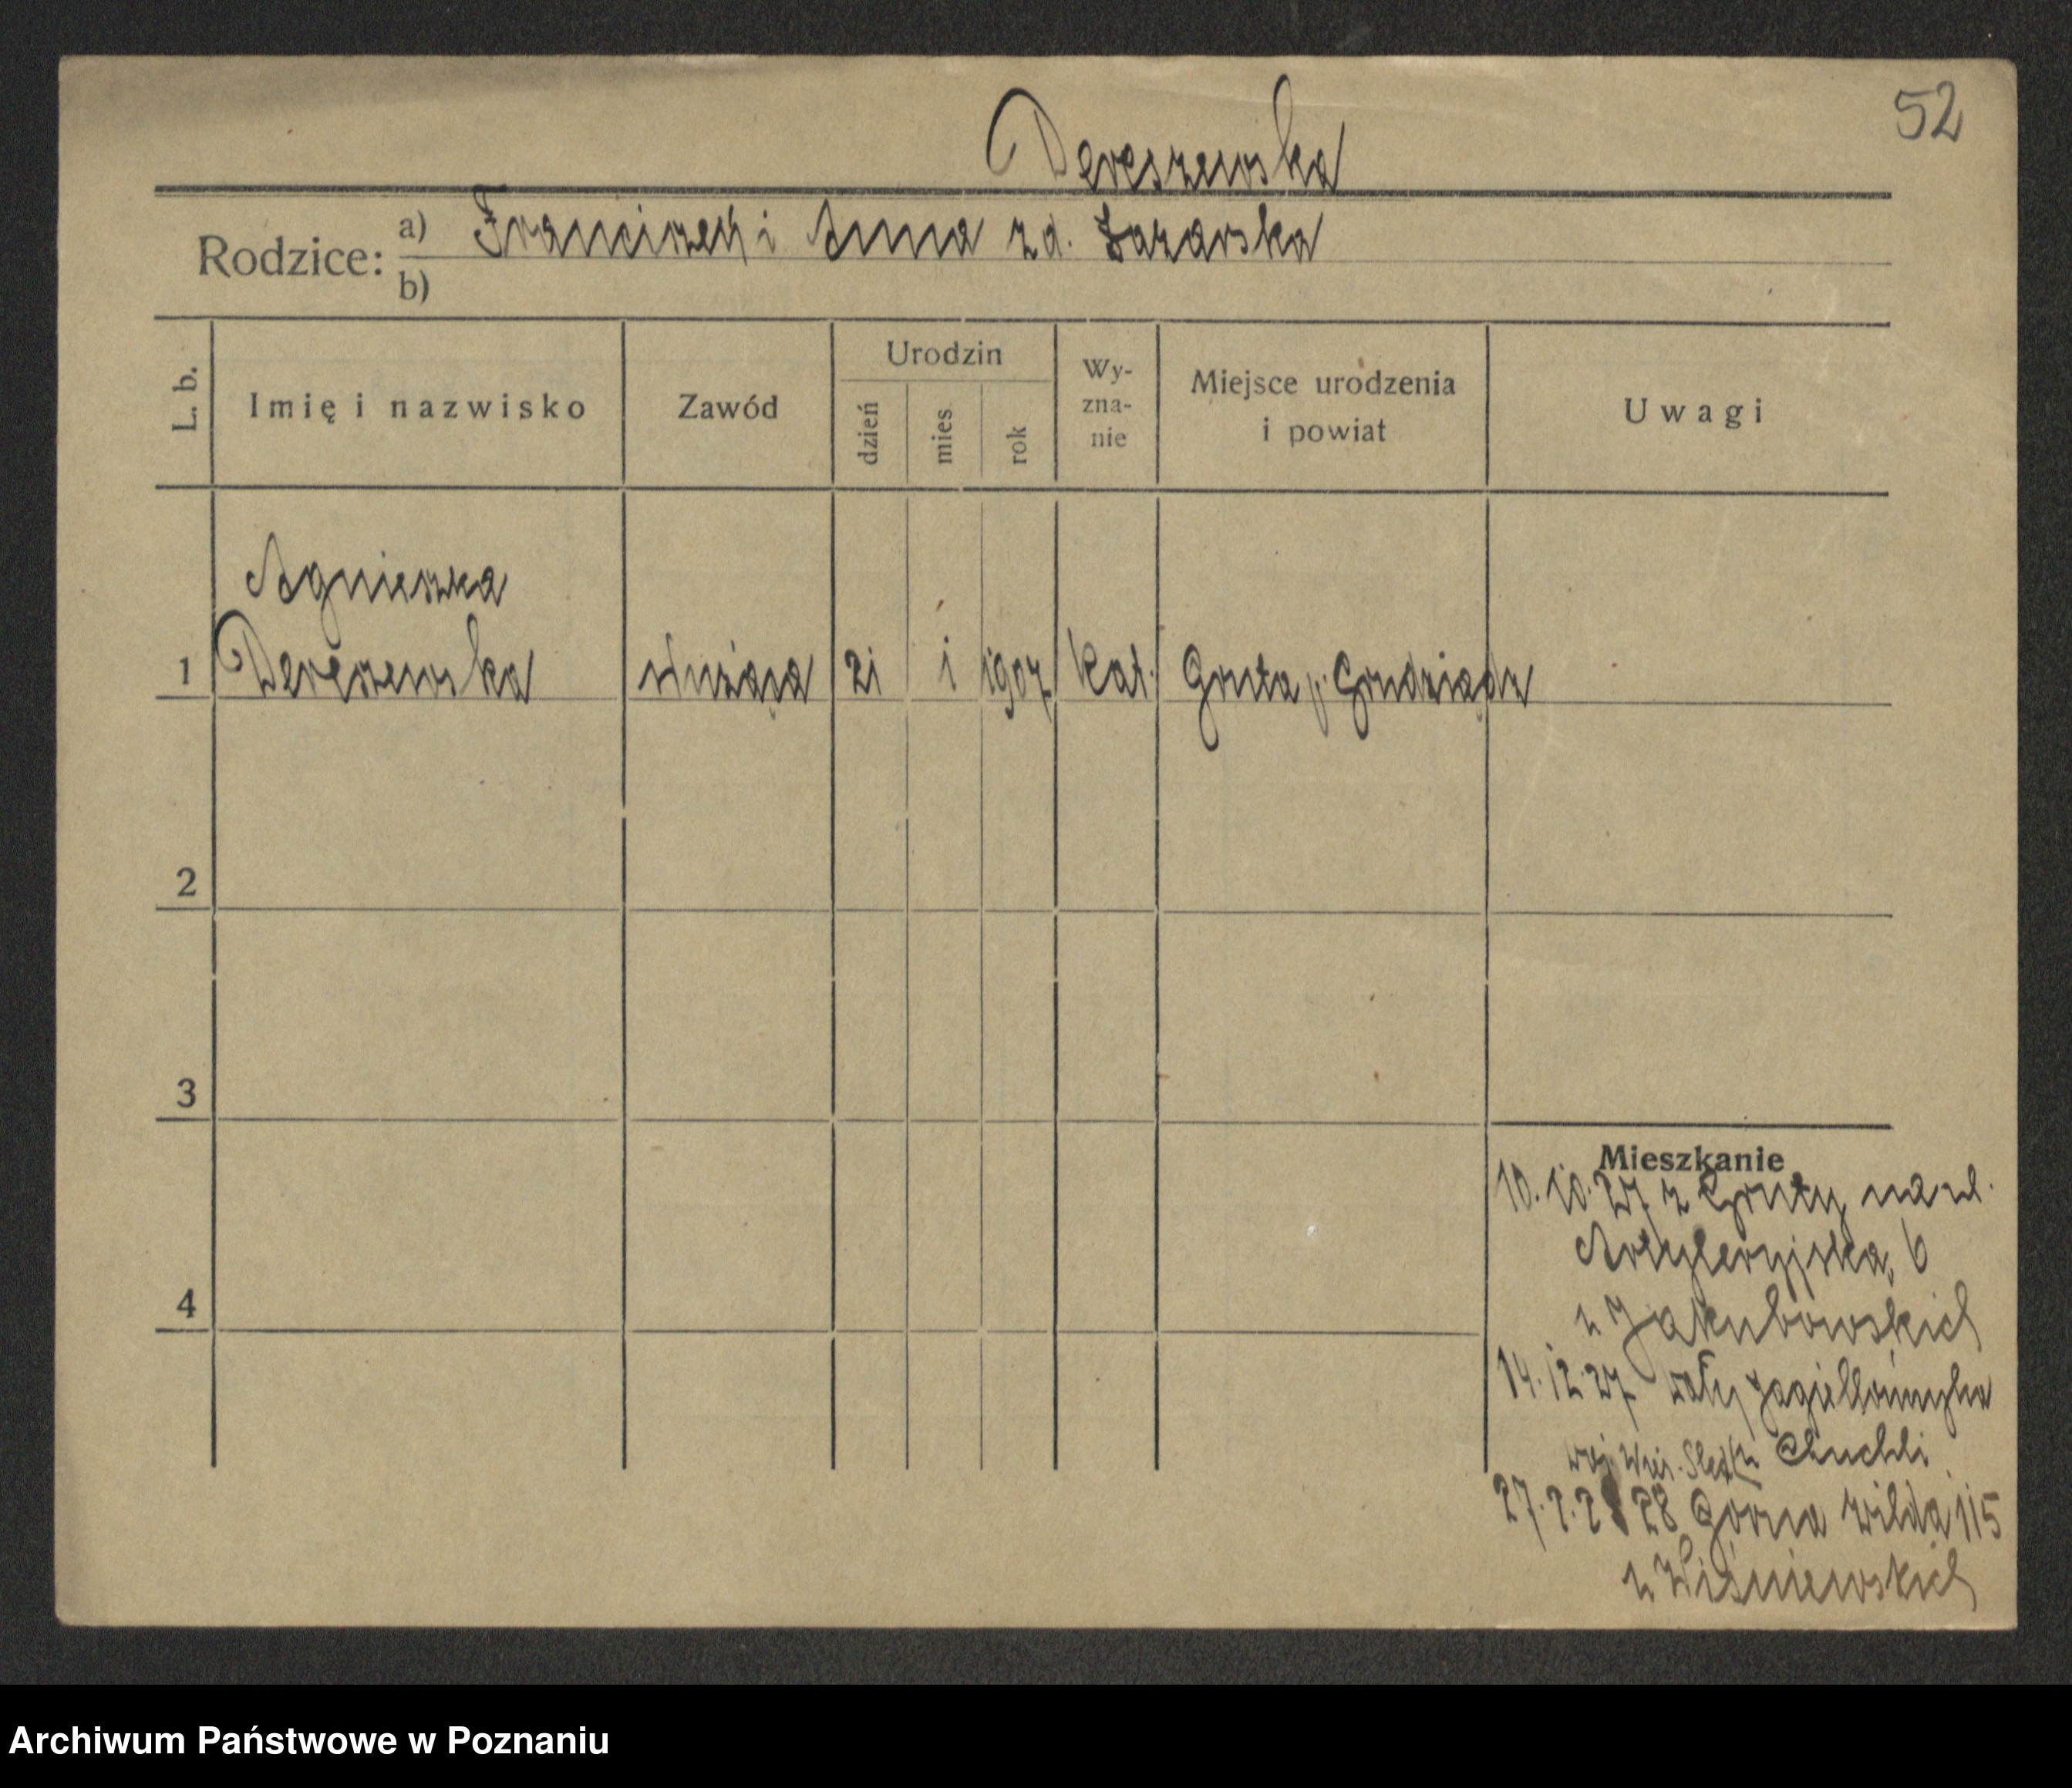 52
Dereszewska
Rodzice: a) Franciszek i Anna zd. Łazarska
b)
L. b.
Imię i nazwisko
Zawód
Urodzin
dzień
mies.
rok
Wy-
zna-
nie
Miejsce urodzenia
i powiat
Uwagi
Agnieszka
1 Dereszewska służąca 21 1 1907 kat. Gruta p. Grudziądz
2
3
4
Mieszkanie
10.10.27 z Gruty na ul.
Artyleryjska, 6
u Jakubowskich
14.12.27 Wały
27.2. 28 Górna Wilda 115
u Wiśniewskich
Archiwum Państwowe w Poznaniu